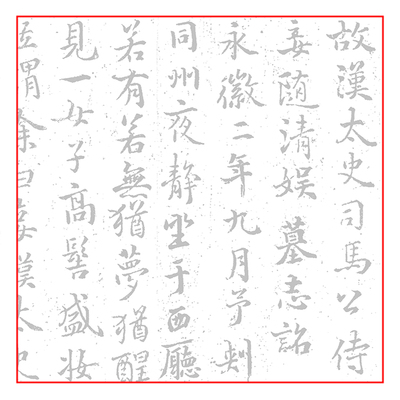 故漢太史司馬公侍
妾随清娛墓志銘
永徽二年九月予刺
同州夜靜坐于西廳
若有若無猶夢猶醒
見一女子高髻盛妝
謂余曰妾漢太史